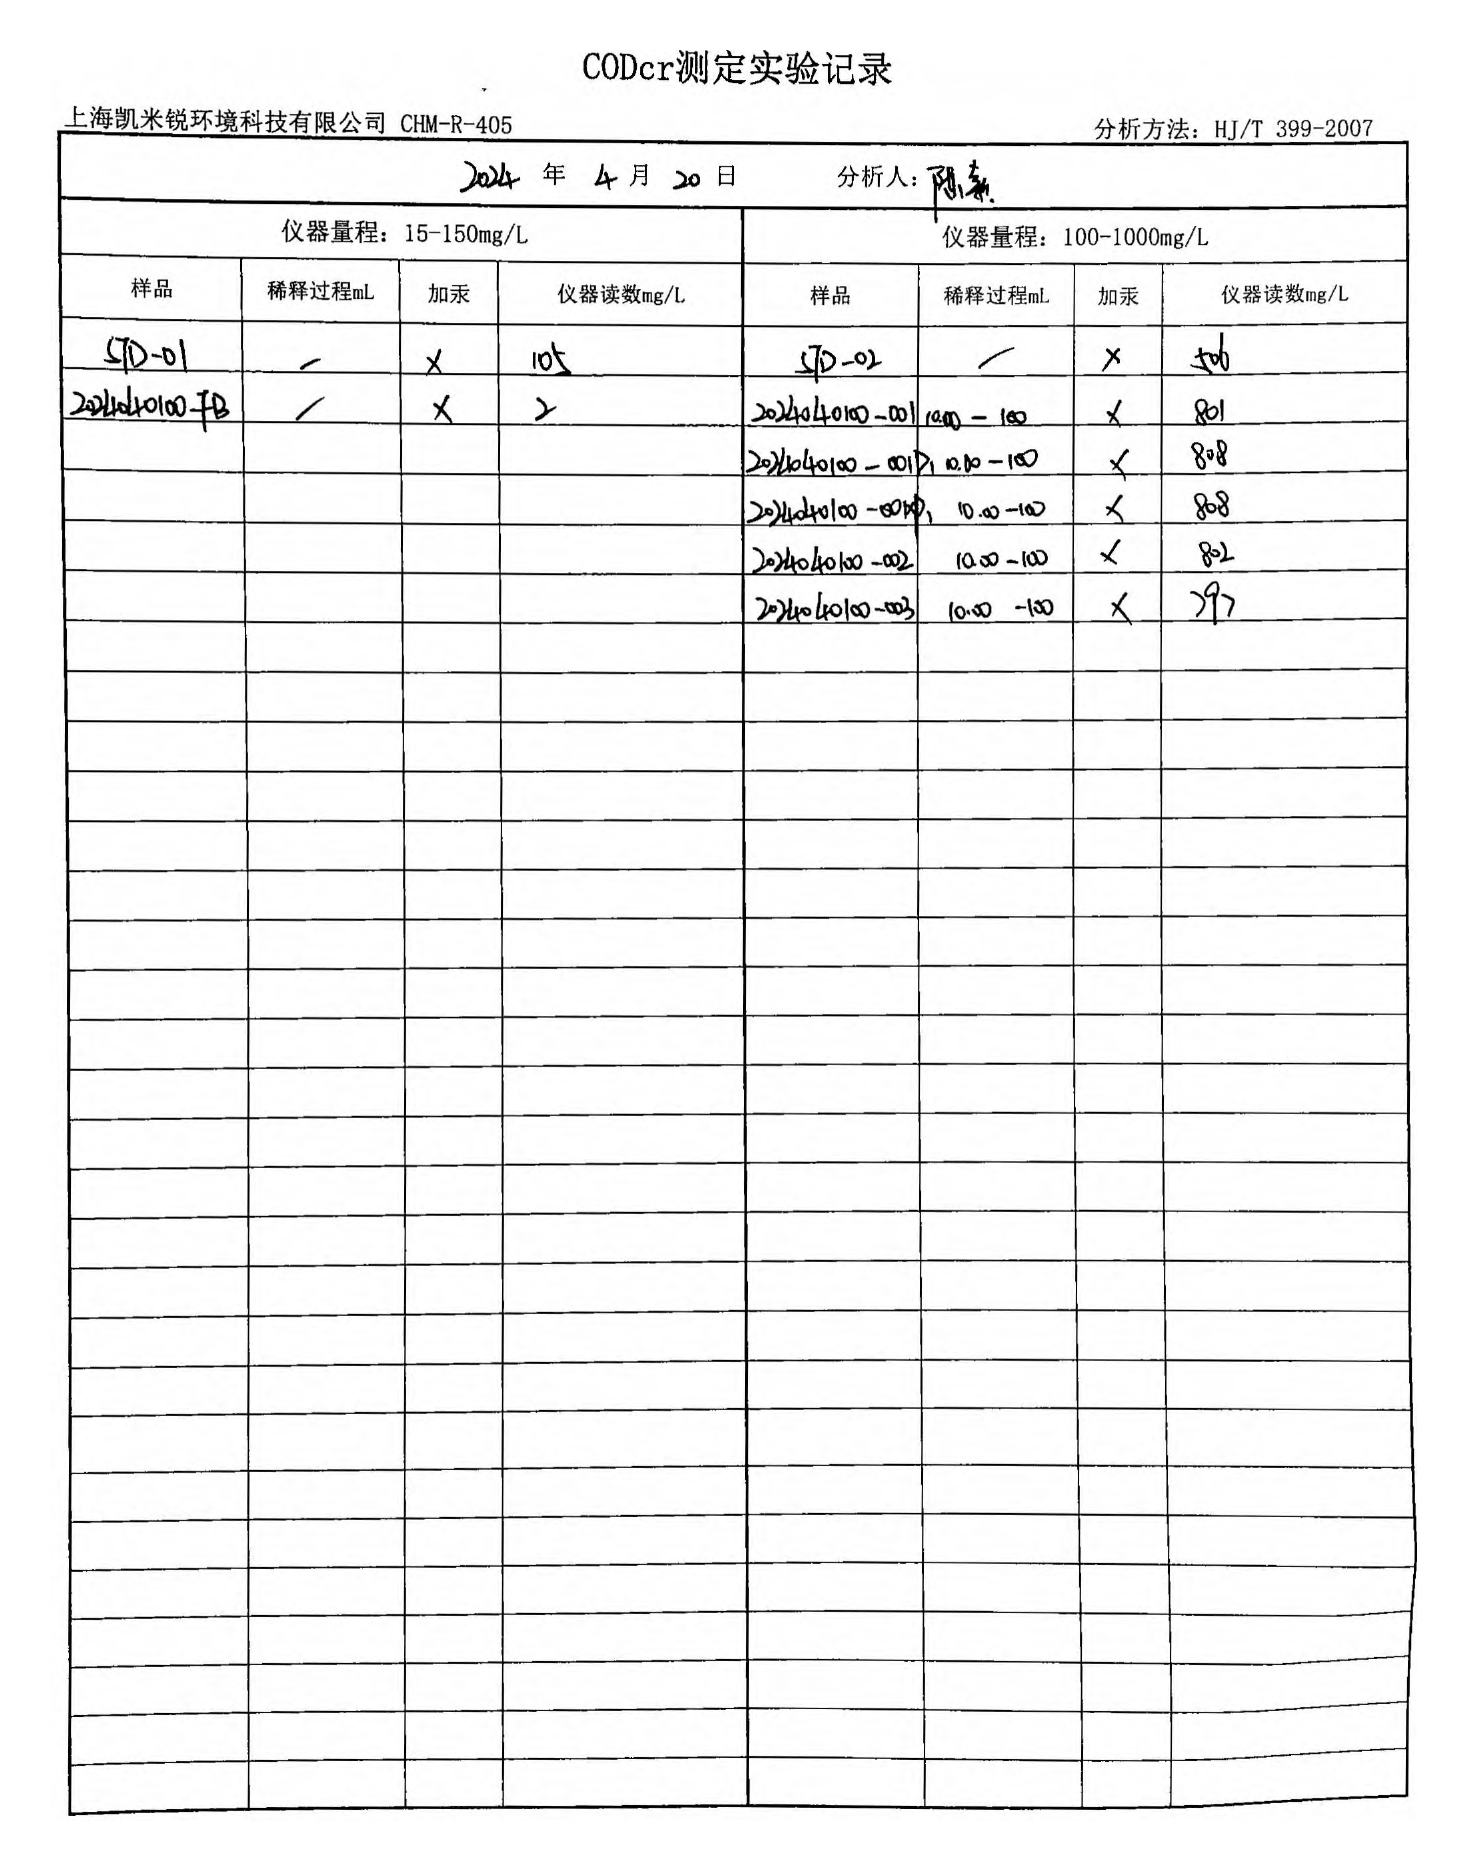 CODcr测定实验记录
上海凯米锐环境科技有限公司 CHM-R-405 分析方法: HJ/T 399-2007
2024 年 4 月 20 日 分析人: 陈
仪器量程: 15-150mg/L 仪器量程: 100-1000mg/L
样品 稀释过程mL 加汞 仪器读数mg/L 样品 稀释过程mL 加汞 仪器读数mg/L
STD-01 / × 105 STD-02 / × 506
2024040100-FB / × 2 2024040100-001 10.00-100 × 801
2024040100-001D1 10.00-100 × 808
10.00-100 × 808
2024040100-002 10.00-100 × 802
2024040100-003 10.00-100 × 797